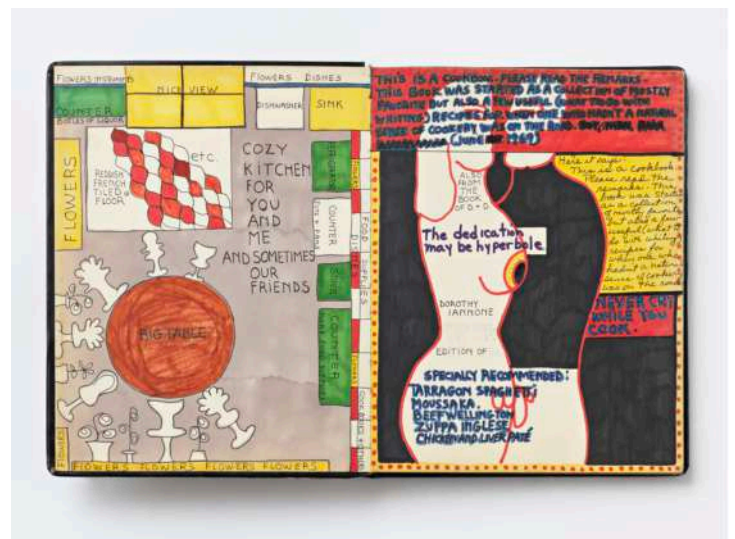 FLOWERS
NICE VIEW
FLOWERS DISHES
COUNTER
BOTTLES OF LIQUOR
DISHWASHER
SINK
FLOWERS
REDDISH
FRENCH
TILED
FLOOR
etc.
COZY
KITCHEN
FOR
YOU
AND
ME
AND SOMETIMES
OUR
FRIENDS
COUNTER
COUNTER
FOOD SUPPLIES
BIG TABLE
FLOWERS
FLOWERS FLOWERS FLOWERS FLOWERS
THIS IS A COOKBOOK. PLEASE READ THE REMARKS.
THIS BOOK WAS STARTED AS A COLLECTION OF MOSTLY
FAVORITE BUT ALSO A FEW USEFUL (WHAT TO DO WITH
WHITING) RECIPES FOR WHEN ONE WHO HADN'T A NATURAL
SENSE OF COOKERY WAS ON THE ROAD. BUT,
(JUNE 1969)
ALSO
FROM
THE
BOOK
OF D. + D.
The dedication
may be hyperbole
DOROTHY
IANNONE
EDITION OF
SPECIALLY RECOMMENDED:
TARRAGON SPAGHETTI
MOUSSAKA.
BEEF WELLINGTON
ZUPPA INGLESE
CHICKEN AND LIVER PATÉ
Here it says:
This is a cookbook.
Please read the
remarks. This
book was started
as a collection
of mostly favorite
but also a few
useful (what to
do with whiting)
recipes for
when one who
hadn't a natural
sense of cookery
was on the road
NEVER CRY
WHILE YOU
COOK.